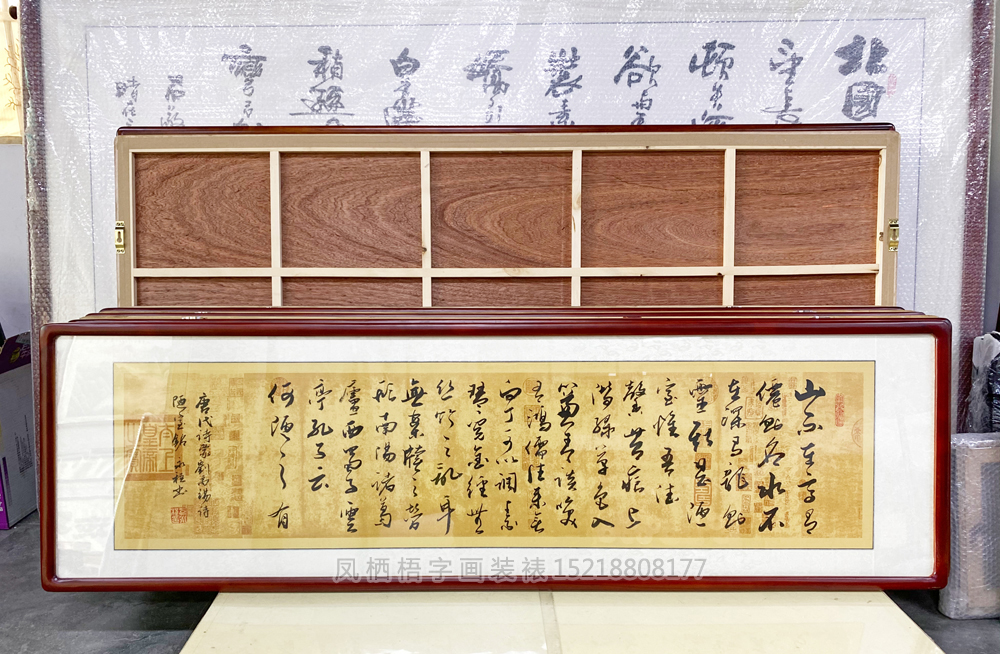 北國
望長
頓失
欲與
裝素
嬌引
稍遜
山不在高有
僊則名水不
在深有龍則
靈斯是陋
室惟吾德
馨苔痕上
階綠草色入
簾青談笑
有鴻儒往來無
白丁可以調素
琴閱金經無
絲竹之亂耳
無案牘之勞
形南陽諸葛
廬西蜀子雲
亭孔子云
何陋之有
唐代詩豪劉禹錫詩
陋室銘 書
凤栖梧字画装裱15218808177